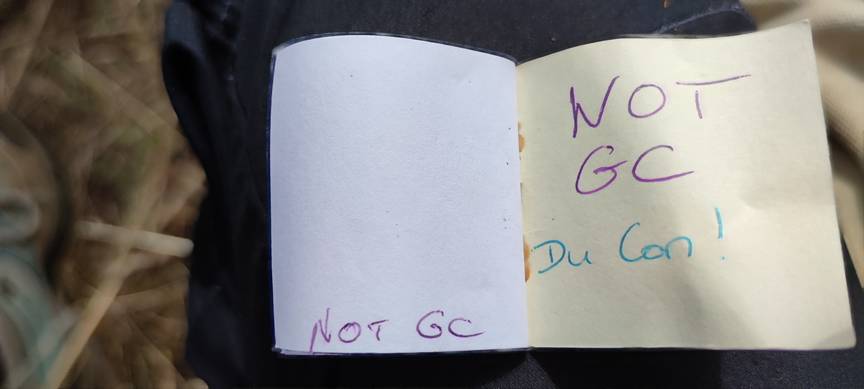 NOT GC
NOT
GC
Du Con !